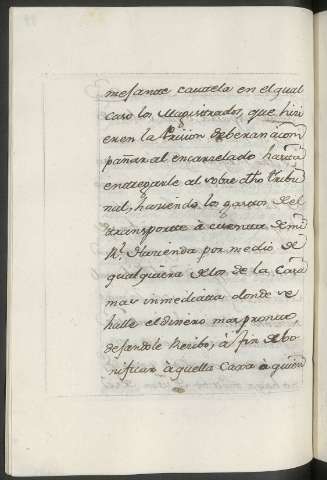 mesante cautela en el qual
caso los Magistrados, que hizi
eren la Prision deberan acom
pañar al encarcelado hasta
entregarle al sobre dho tribu
nal, haviendo los gastos del
transporte à cuenta de mi
Rl. Hazienda por medio de
qualquiera delos de la Caxa
mas inmediata donde se
halle el dinero mas pronto,
desandole Recibo, à fin de bo
nificar à quella Caxa à quien